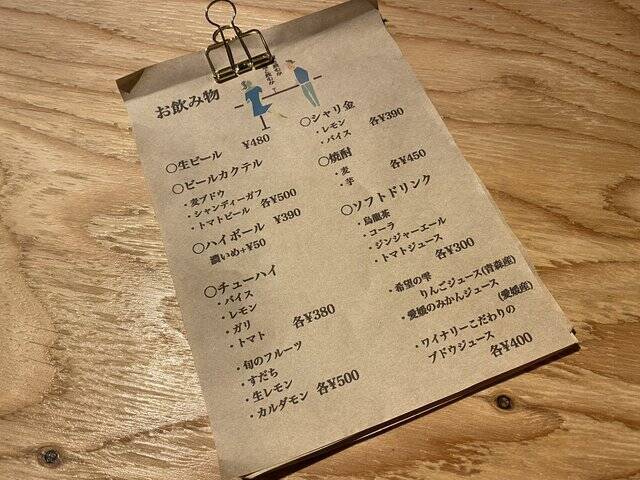 お飲み物
○生ビール ¥480
○ビールカクテル
・麦ブドウ
・シャンディーガフ
・トマトビール 各¥500
○ハイボール ¥390
濃いめ+¥50
○チューハイ
・バイス
・レモン
・ガリ
・トマト 各¥380
・旬のフルーツ
・すだち
・生レモン
・カルダモン 各¥500
○シャリ金
・レモン
・バイス 各¥390
○焼酎
・麦
・芋 各¥450
○ソフトドリンク
・烏龍茶
・コーラ
・ジンジャーエール
・トマトジュース
各¥300
・希望の雫
りんごジュース(青森産)
・愛媛のみかんジュース
(愛媛産)
・ワイナリーこだわりの
ブドウジュース
各¥400